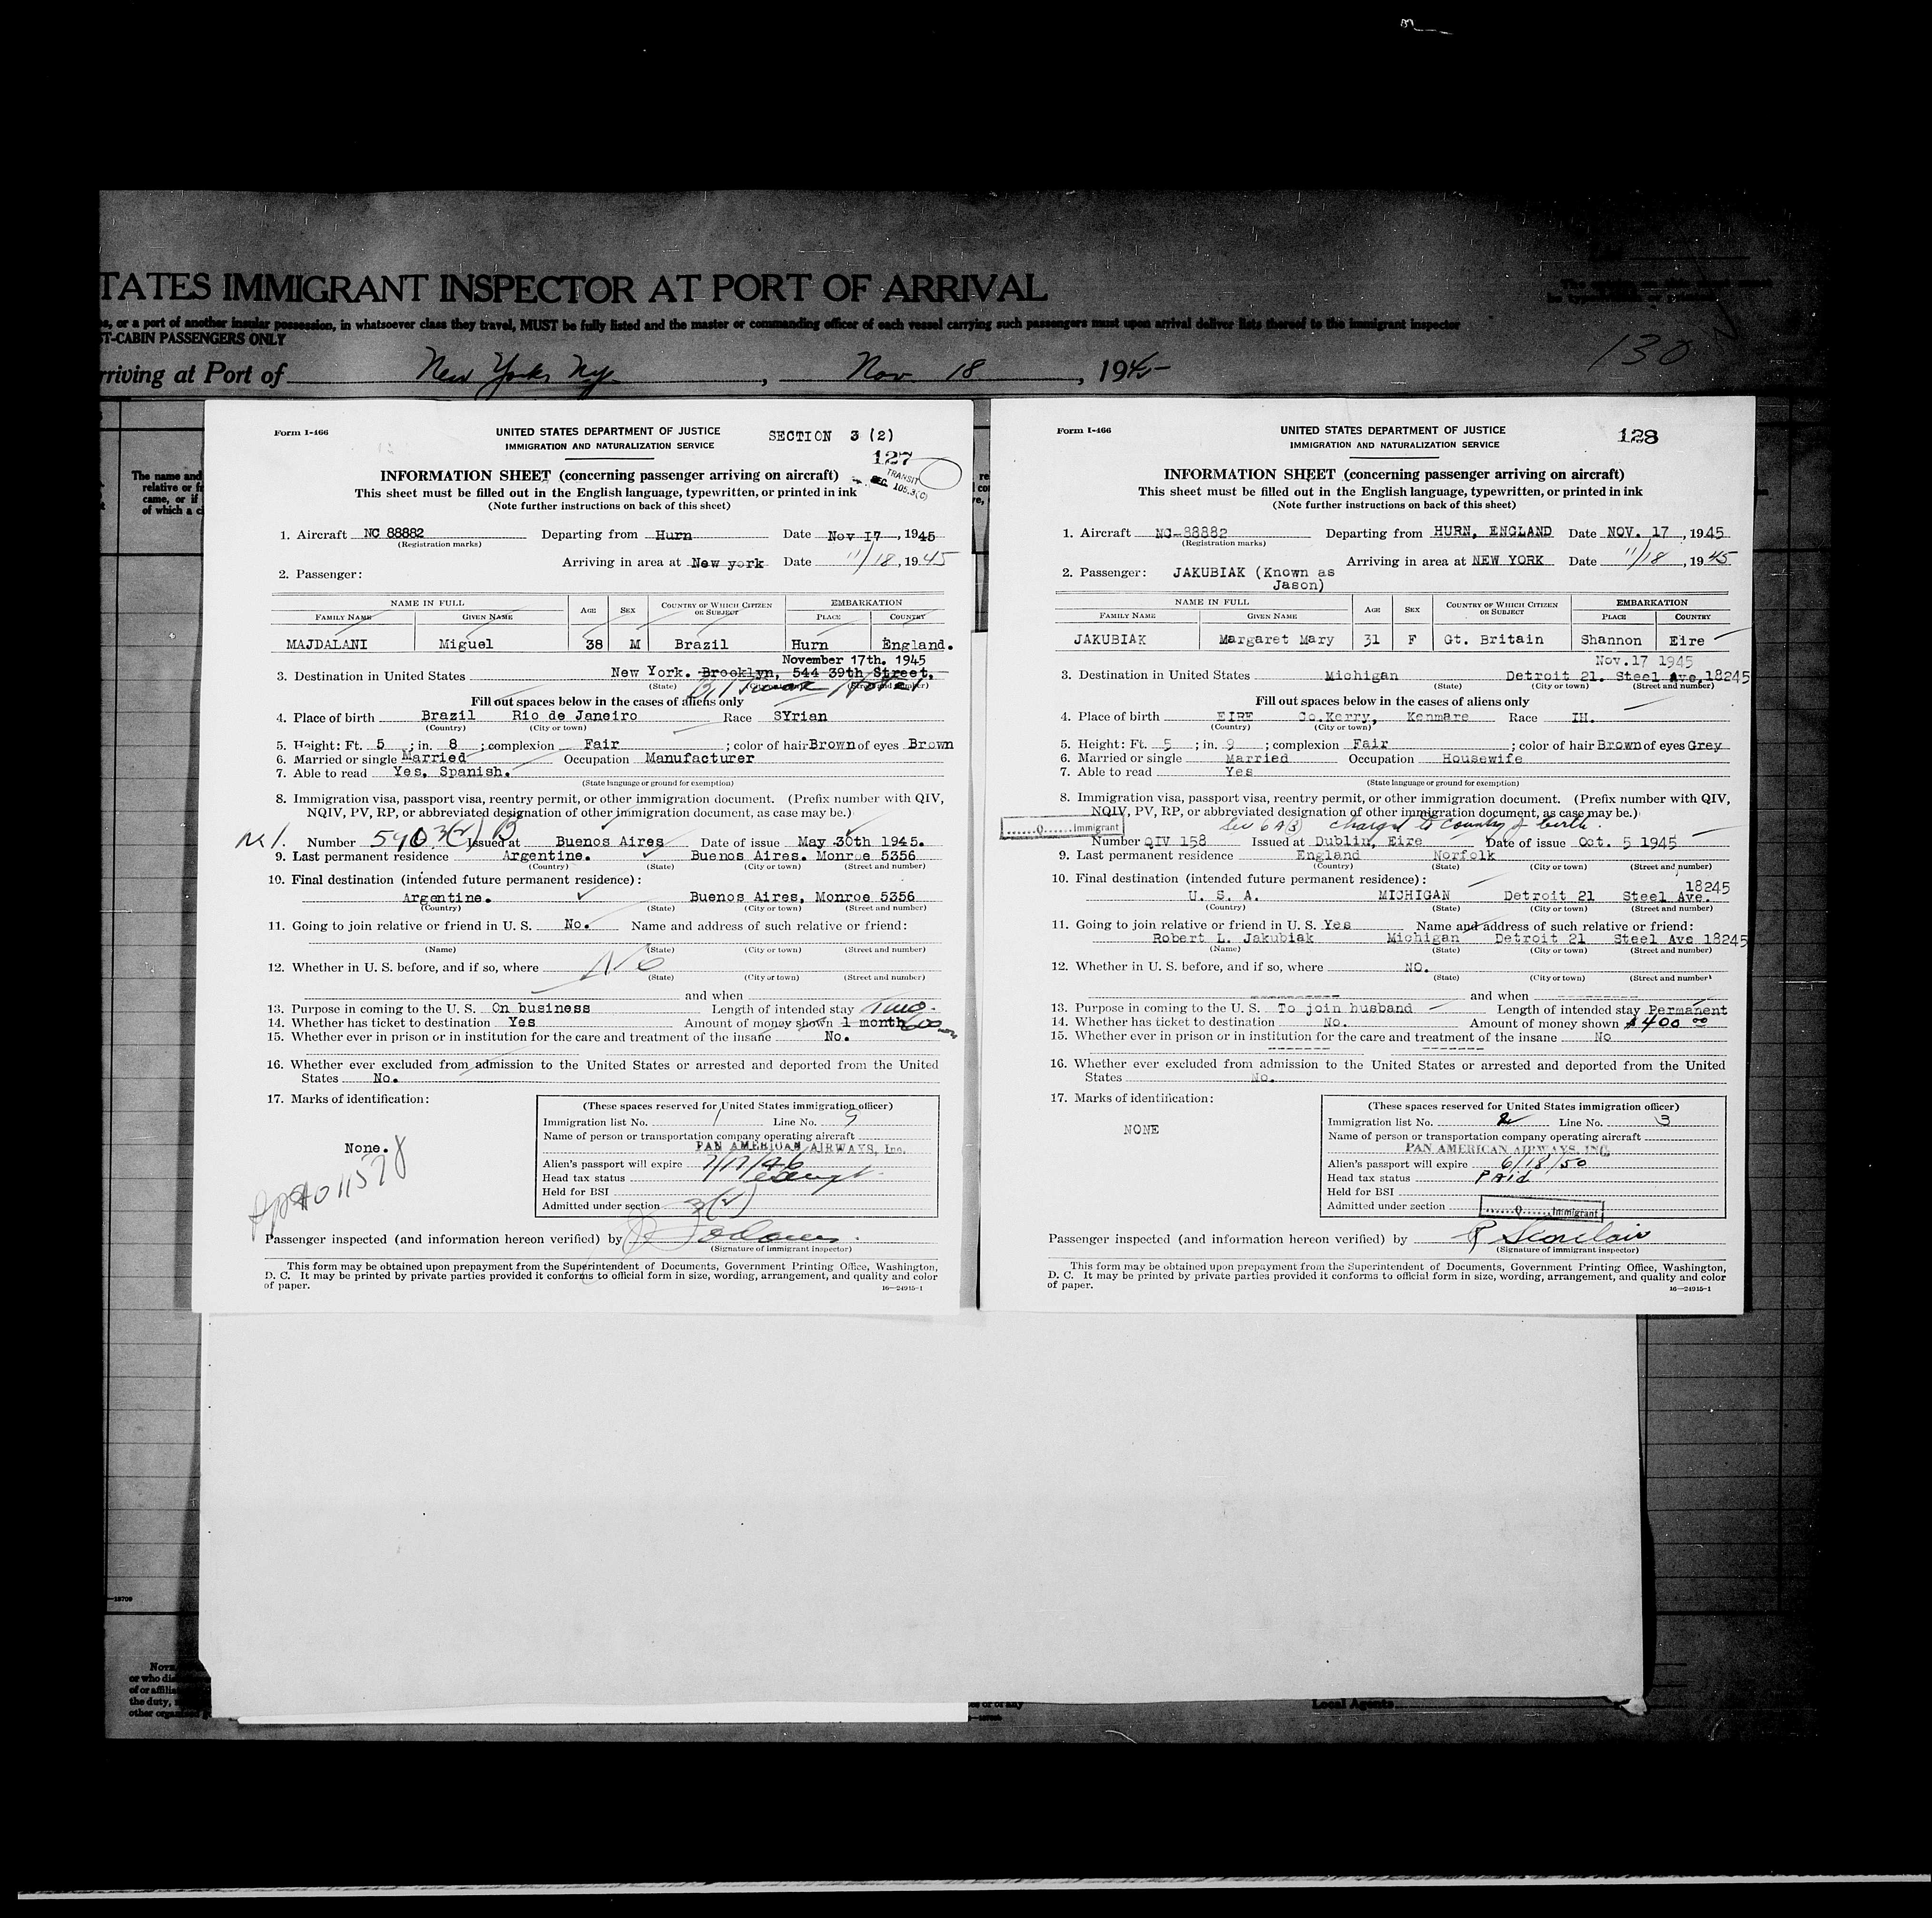 TATES IMMIGRANT INSPECTOR AT PORT OF ARRIVAL
or a port of another insular possession, in whatsoever class they travel, MUST be fully listed and the master or commanding officer of each vessel carrying such passengers must upon arrival deliver lists thereof to the immigrant inspector
ST-CABIN PASSENGERS ONLY
130
rriving at Port of New York NY. , Nov. 18 , 1945
The name and
relative or
came, or if
of which a
Form I-466
UNITED STATES DEPARTMENT OF JUSTICE
IMMIGRATION AND NATURALIZATION SERVICE
SECTION 3 (2)
127
TRANSIT
SEC. 105.3(C)
INFORMATION SHEET (concerning passenger arriving on aircraft)
This sheet must be filled out in the English language, typewritten, or printed in ink
(Note further instructions on back of this sheet)
1. Aircraft NC 88882 Departing from Hurn Date Nov I7 , 1945
(Registration marks)
Arriving in area at New york Date 11/18 , 1945
2. Passenger:
NAME IN FULL AGE SEX COUNTRY OF WHICH CITIZEN OR SUBJECT EMBARKATION
FAMILY NAME GIVEN NAME PLACE COUNTRY
MAJDALANI Miguel 38 M Brazil Hurn England.
November 17th. 1945
3. Destination in United States New York. Brooklyn, 544 39th Street.
(State) (City or town) (Street and number)
Fill out spaces below in the cases of aliens only
4. Place of birth Brazil Rio de Janeiro Race SYrian
(Country) (City or town)
5. Height: Ft. 5 ; in. 8 ; complexion Fair ; color of hair Brown of eyes Brown
6. Married or single Married Occupation Manufacturer
7. Able to read Yes, Spanish.
(State language or ground for exemption)
8. Immigration visa, passport visa, reentry permit, or other immigration document. (Prefix number with QIV,
NQIV, PV, RP, or abbreviated designation of other immigration document, as case may be.)
Number 590 3(2) B Issued at Buenos Aires Date of issue May 30th 1945.
9. Last permanent residence Argentine. Buenos Aires. Monroe 5356
(Country) (State) (City or town) (Street and number)
10. Final destination (intended future permanent residence):
Argentine. Buenos Aires, Monroe 5356
(Country) (State) (City or town) (Street and number)
11. Going to join relative or friend in U. S. No. Name and address of such relative or friend:
(Name) (State) (City or town) (Street and number)
12. Whether in U. S. before, and if so, where No
(State) (City or town) (Street and number)
and when
13. Purpose in coming to the U. S. On business Length of intended stay 1 mo.
14. Whether has ticket to destination Yes Amount of money shown 1 month 600
15. Whether ever in prison or in institution for the care and treatment of the insane No.
16. Whether ever excluded from admission to the United States or arrested and deported from the United
States No.
17. Marks of identification:
None.
(These spaces reserved for United States immigration officer)
Immigration list No. 1 Line No. 9
Name of person or transportation company operating aircraft
PAN AMERICAN AIRWAYS, Inc.
Alien's passport will expire 7/17/46
Head tax status exempt
Held for BSI
Admitted under section 3(2)
Passenger inspected (and information hereon verified) by
(Signature of immigrant inspector)
This form may be obtained upon prepayment from the Superintendent of Documents, Government Printing Office, Washington,
D. C. It may be printed by private parties provided it conforms to official form in size, wording, arrangement, and quality and color
of paper.
16—24915-1
Form I-466
UNITED STATES DEPARTMENT OF JUSTICE
IMMIGRATION AND NATURALIZATION SERVICE
128
INFORMATION SHEET (concerning passenger arriving on aircraft)
This sheet must be filled out in the English language, typewritten, or printed in ink
(Note further instructions on back of this sheet)
1. Aircraft NC-88882 Departing from HURN, ENGLAND Date NOV. 17 , 1945
(Registration marks)
Arriving in area at NEW YORK Date 11/18 , 1945
2. Passenger: JAKUBIAK (Known as
Jason)
NAME IN FULL AGE SEX COUNTRY OF WHICH CITIZEN OR SUBJECT EMBARKATION
FAMILY NAME GIVEN NAME PLACE COUNTRY
JAKUBIAK Margaret Mary 31 F Gt. Britain Shannon Eire
Nov.17 1945
3. Destination in United States Michigan Detroit 21. Steel Ave,18245
(State) (City or town) (Street and number)
Fill out spaces below in the cases of aliens only
4. Place of birth EIRE Co.Kerry, Kenmare Race IH.
(Country) (City or town)
5. Height: Ft. 5 ; in. 9 ; complexion Fair ; color of hair Brown of eyes Grey
6. Married or single Married Occupation Housewife
7. Able to read Yes
(State language or ground for exemption)
8. Immigration visa, passport visa, reentry permit, or other immigration document. (Prefix number with QIV,
NQIV, PV, RP, or abbreviated designation of other immigration document, as case may be.)
......Q......Immigrant Sec 6 A(3) charged to country of birth.
Number QIV 158 Issued at Dublin, Eire Date of issue Oct. 5 1945
9. Last permanent residence England Norfolk
(Country) (State) (City or town) (Street and number)
10. Final destination (intended future permanent residence):
18245
U. S. A. MICHIGAN Detroit 21 Steel Ave.
(Country) (State) (City or town) (Street and number)
11. Going to join relative or friend in U. S. Yes Name and address of such relative or friend:
Robert L. Jakubiak Michigan Detroit 21 Steel Ave 18245
(Name) (State) (City or town) (Street and number)
12. Whether in U. S. before, and if so, where NO.
(State) (City or town) (Street and number)
and when
13. Purpose in coming to the U. S. To join husband Length of intended stay Permanent
14. Whether has ticket to destination No. Amount of money shown $400 00
15. Whether ever in prison or in institution for the care and treatment of the insane No
16. Whether ever excluded from admission to the United States or arrested and deported from the United
States No.
17. Marks of identification:
NONE
(These spaces reserved for United States immigration officer)
Immigration list No. 2 Line No. 3
Name of person or transportation company operating aircraft
PAN AMERICAN AIRWAYS, INC.
Alien's passport will expire 6/18/50
Head tax status Paid
Held for BSI
Admitted under section ......Q......Immigrant
Passenger inspected (and information hereon verified) by R Sinclair
(Signature of immigrant inspector)
This form may be obtained upon prepayment from the Superintendent of Documents, Government Printing Office, Washington,
D. C. It may be printed by private parties provided it conforms to official form in size, wording, arrangement, and quality and color
of paper.
16—24915-1
or who
of or
the duty,
other
Local Agents